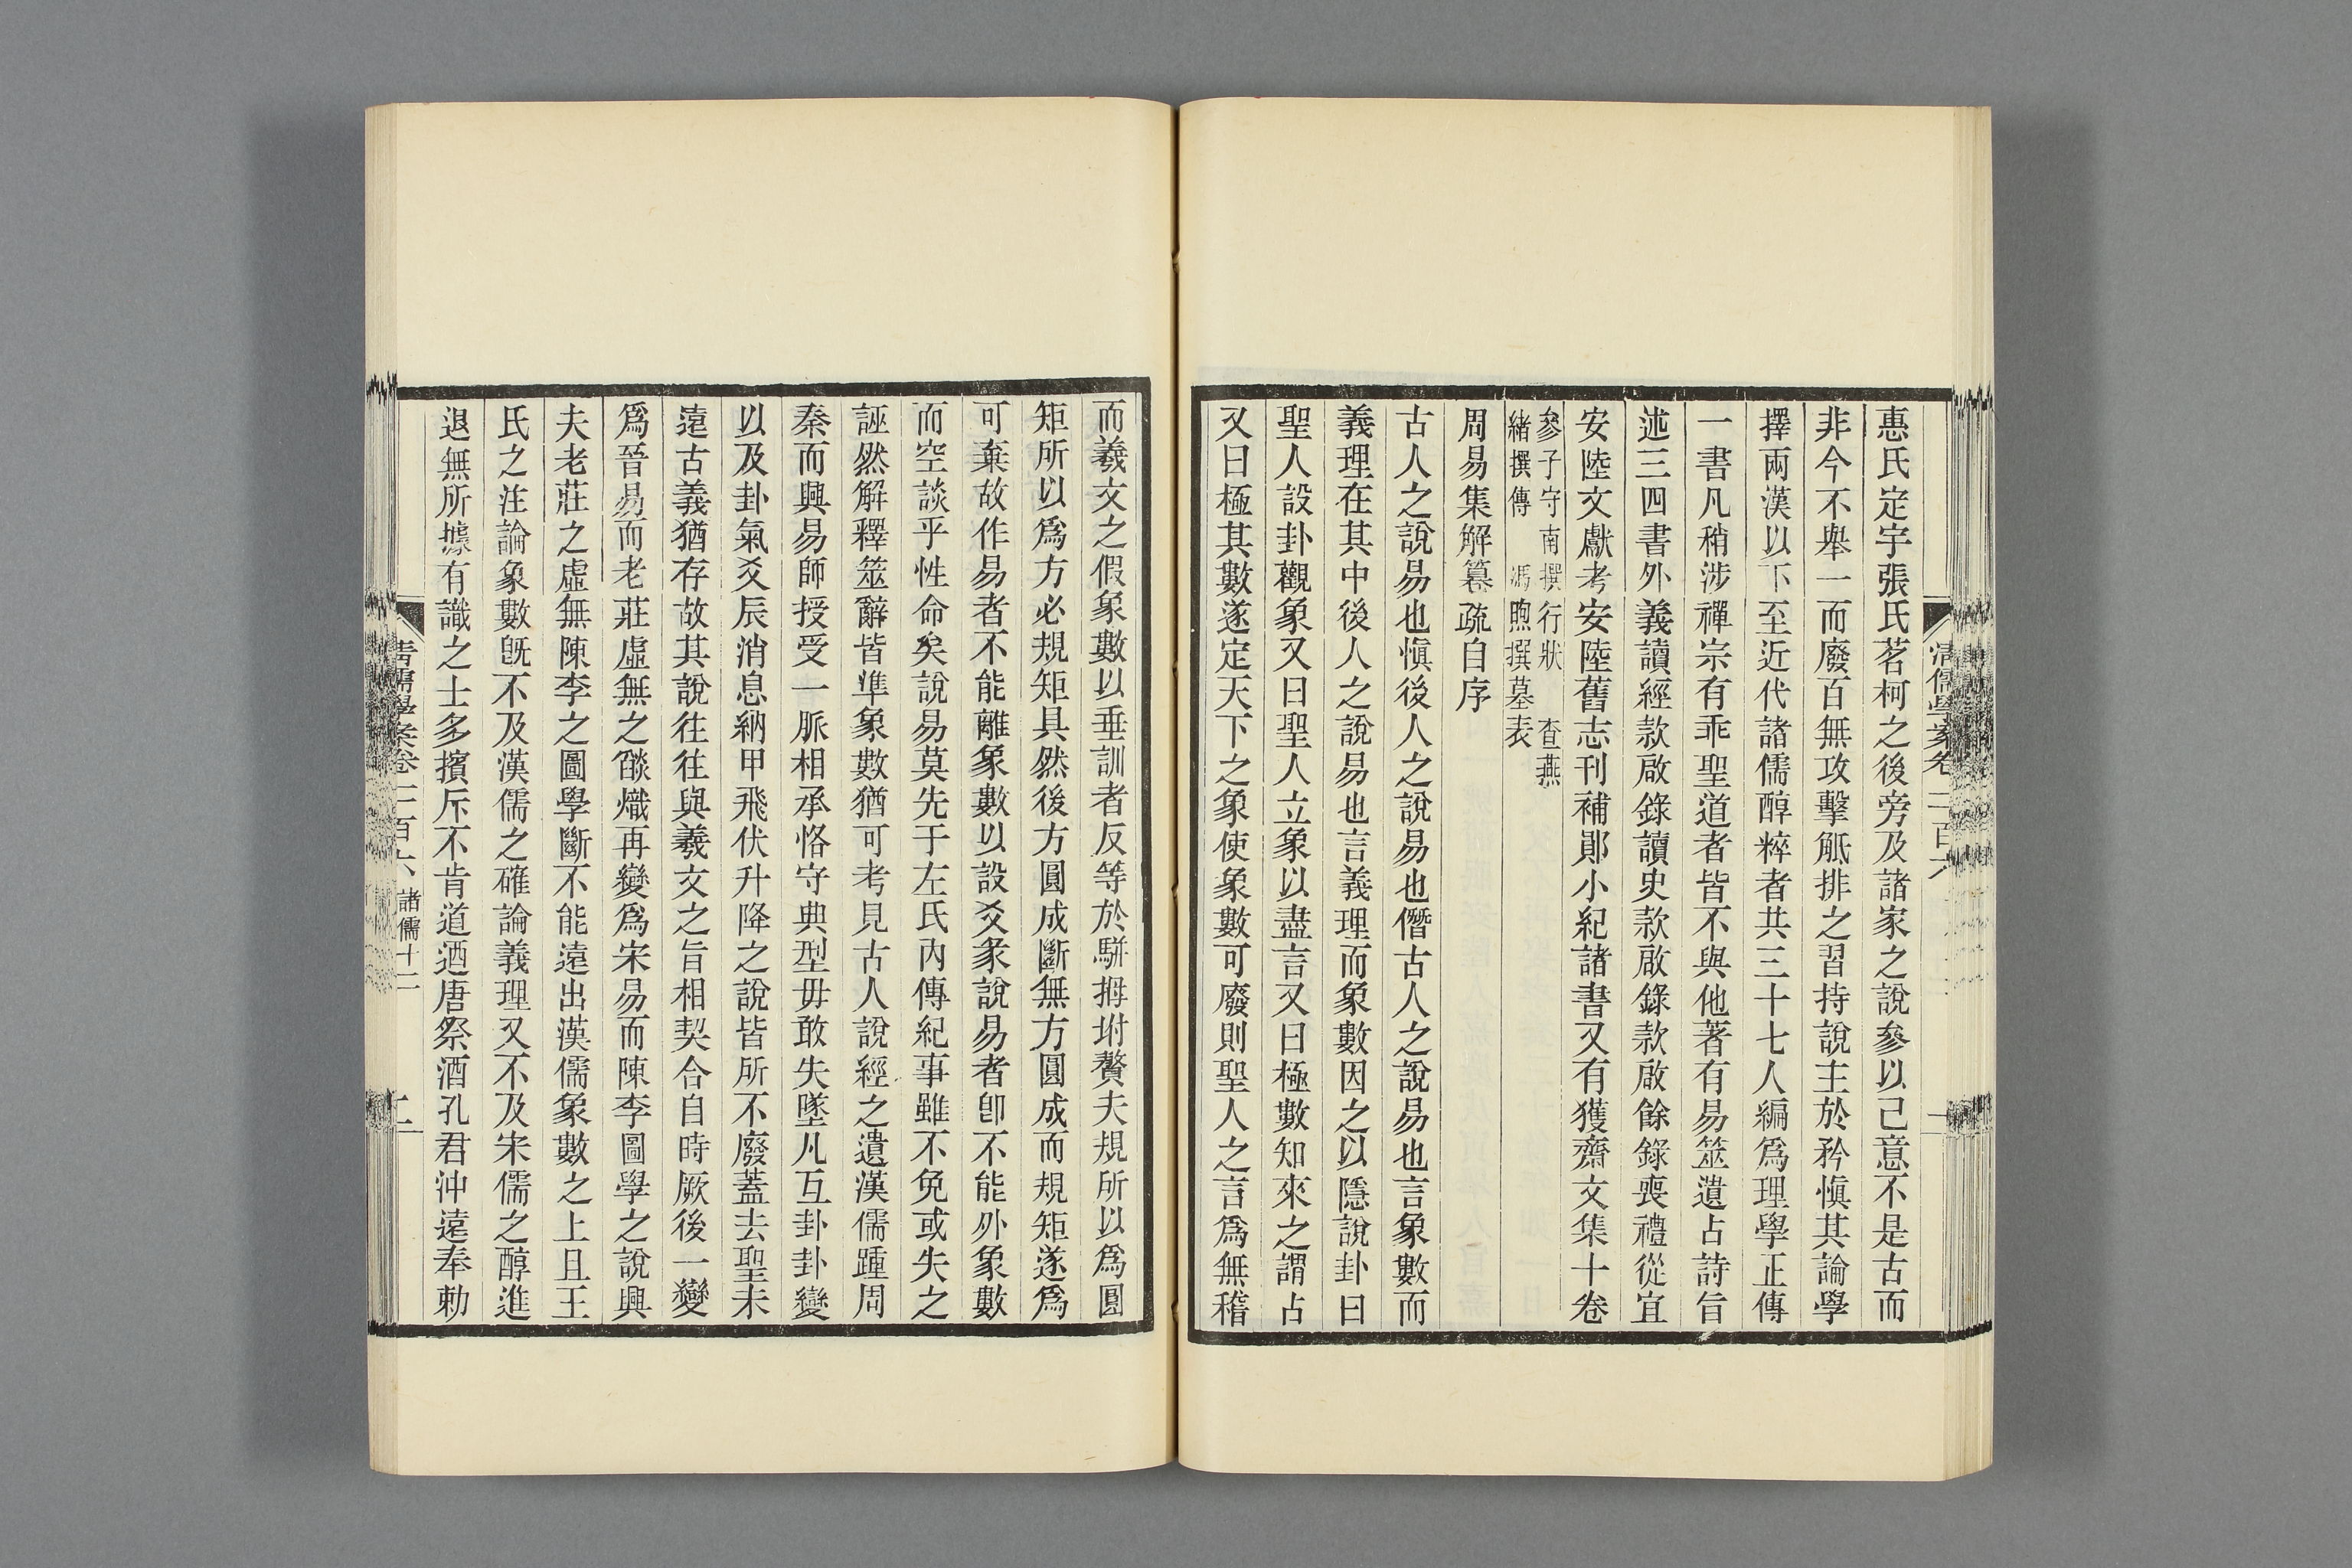 清儒學案卷二百六
惠氏定宇張氏茗柯之後旁及諸家之說參以己意不是古而
非今不舉一而廢百無攻擊觝排之習持說主於矜愼其論學
擇兩漢以下至近代諸儒醇粹者共三十七人編爲理學正傳
一書凡稍涉禪宗有乖聖道者皆不與他著有易筮遺占詩旨
述三四書外義讀經款啟錄讀史款啟錄款啟餘錄喪禮從宜
安陸文獻考安陸舊志刊補鄖小紀諸書又有獲齋文集十卷
參子守南撰行狀 查燕
緒撰傳 馮煦撰墓表
周易集解纂疏自序
古人之說易也愼後人之說易也僭古人之說易也言象數而
義理在其中後人之說易也言義理而象數因之以隱說卦曰
聖人設卦觀象又曰聖人立象以盡言又曰極數知來之謂占
又曰極其數遂定天下之象使象數可廢則聖人之言爲無稽
而羲文之假象數以垂訓者反等於駢拇坿贅夫規所以爲圓
矩所以爲方必規矩具然後方圓成斷無方圓成而規矩遂爲
可棄故作易者不能離象數以設爻彖說易者卽不能外象數
而空談乎性命矣說易莫先于左氏內傳紀事雖不免或失之
誣然解釋筮辭皆準象數猶可考見古人說經之遺漢儒踵周
秦而興易師授受一脈相承恪守典型毋敢失墜凡互卦卦變
以及卦氣爻辰消息納甲飛伏升降之說皆所不廢蓋去聖未
遠古義猶存故其說往往與羲文之旨相契合自時厥後一變
爲晉易而老莊虛無之燄熾再變爲宋易而陳李圖學之說興
夫老莊之虛無陳李之圖學斷不能遠出漢儒象數之上且王
氏之注論象數旣不及漢儒之確論義理又不及宋儒之醇進
退無所據有識之士多擯斥不肯道迺唐祭酒孔君沖遠奉勅
清儒學案卷二百六 諸儒十二
二